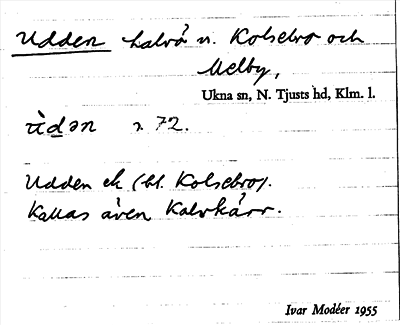 Udden halvö n. Kolsebro och
Melby,
Ukna sn, N. Tjusts hd, Klm. l.
ùdən s. 72.
Udden ek (bl. Kolsebro).
Kallas även Kalvkärr.
Ivar Modéer 1955